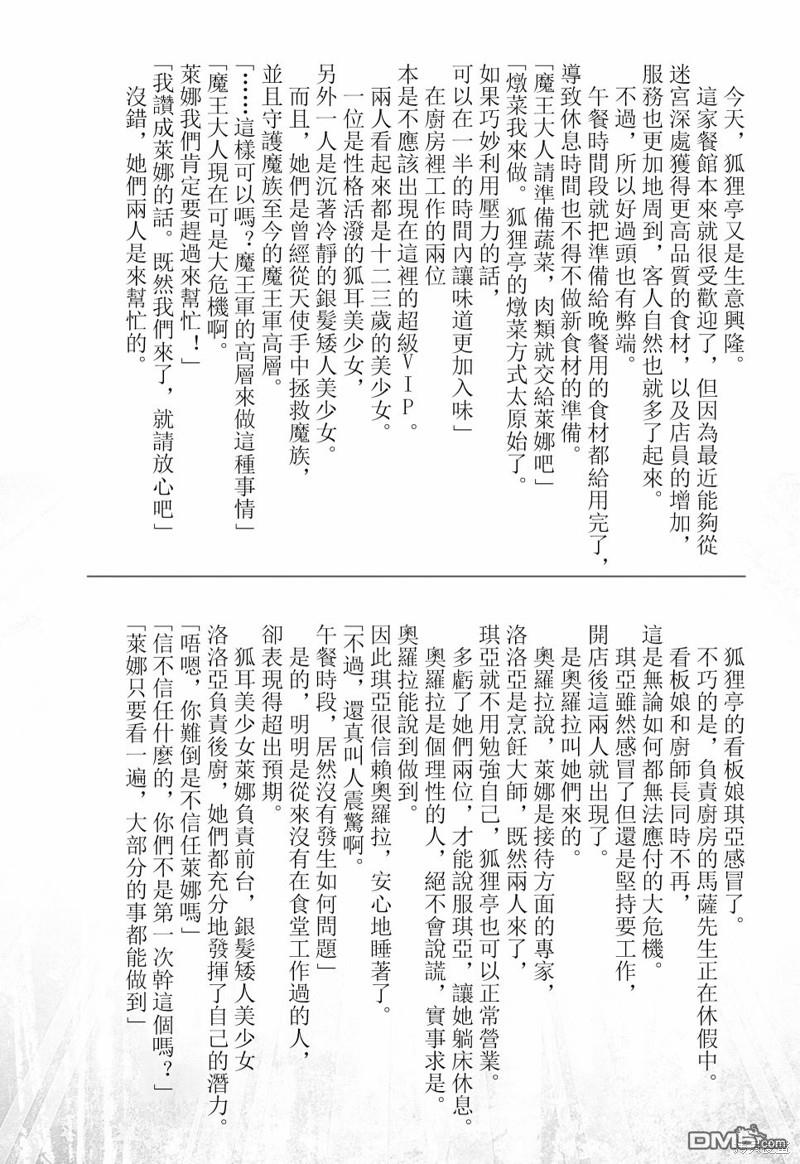 今天，狐狸亭又是生意興隆。
這家餐館本來就很受歡迎了，但因為最近能夠從
迷宮深處獲得更高品質的食材，以及店員的增加，
服務也更加地周到，客人自然也就多了起來。
不過，所以好過頭也有弊端。
午餐時間段就把準備給晚餐用的食材都給用完了，
導致休息時間也不得不做新食材的準備。
「魔王大人請準備蔬菜，肉類就交給萊娜吧」
「燉菜我來做。狐狸亭的燉菜方式太原始了。
如果巧妙利用壓力的話，
可以在一半的時間內讓味道更加入味」
在廚房裡工作的兩位
本是不應該出現在這裡的超級VIP。
兩人看起來都是十二三歲的美少女。
一位是性格活潑的狐耳美少女，
另外一人是沉著冷靜的銀髮矮人美少女。
而且，她們是曾經從天使手中拯救魔族，
並且守護魔族至今的魔王軍高層。
「……這樣可以嗎？魔王軍的高層來做這種事情」
「魔王大人現在可是大危機啊。
萊娜我們肯定要趕過來幫忙！」
「我讚成萊娜的話。既然我們來了，就請放心吧」
沒錯，她們兩人是來幫忙的。
狐狸亭的看板娘琪亞感冒了。
不巧的是，負責廚房的馬薩先生正在休假中。
看板娘和廚師長同時不再，
這是無論如何都無法應付的大危機。
琪亞雖然感冒了但還是堅持要工作，
開店後這兩人就出現了。
是奧羅拉叫她們來的。
奧羅拉說，萊娜是接待方面的專家，
洛洛亞是烹飪大師，既然兩人來了，
琪亞就不用勉強自己，狐狸亭也可以正常營業。
多虧了她們兩位，才能說服琪亞，讓她躺床休息。
奧羅拉是個理性的人，絕不會說謊，實事求是。
奧羅拉能說到做到。
因此琪亞很信賴奧羅拉，安心地睡著了。
「不過，還真叫人震驚啊。
午餐時段，居然沒有發生如何問題」
是的，明明是從來沒有在食堂工作過的人，
卻表現得超出預期。
狐耳美少女萊娜負責前台，銀髮矮人美少女
洛洛亞負責後廚，她們都充分地發揮了自己的潛力。
「唔嗯，你難倒是不信任萊娜嗎」
「信不信任什麼的，你們不是第一次幹這個嗎？」
「萊娜只要看一遍，大部分的事都能做到」
DM5.com